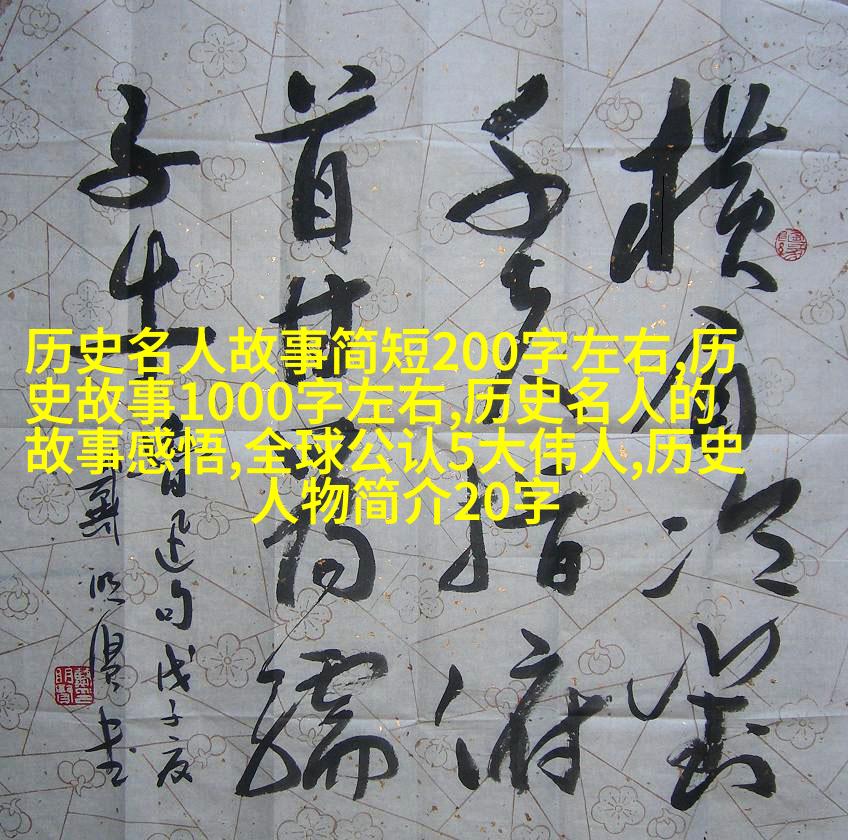 历史名人故事简短200字左右,历
史故事1000字左右,历史名人的
故事感悟,全球公认5大伟人,历史
人物简介20字
横眉冷對
千夫指俯
首甘為孺
子牛
魯迅句戊子夏